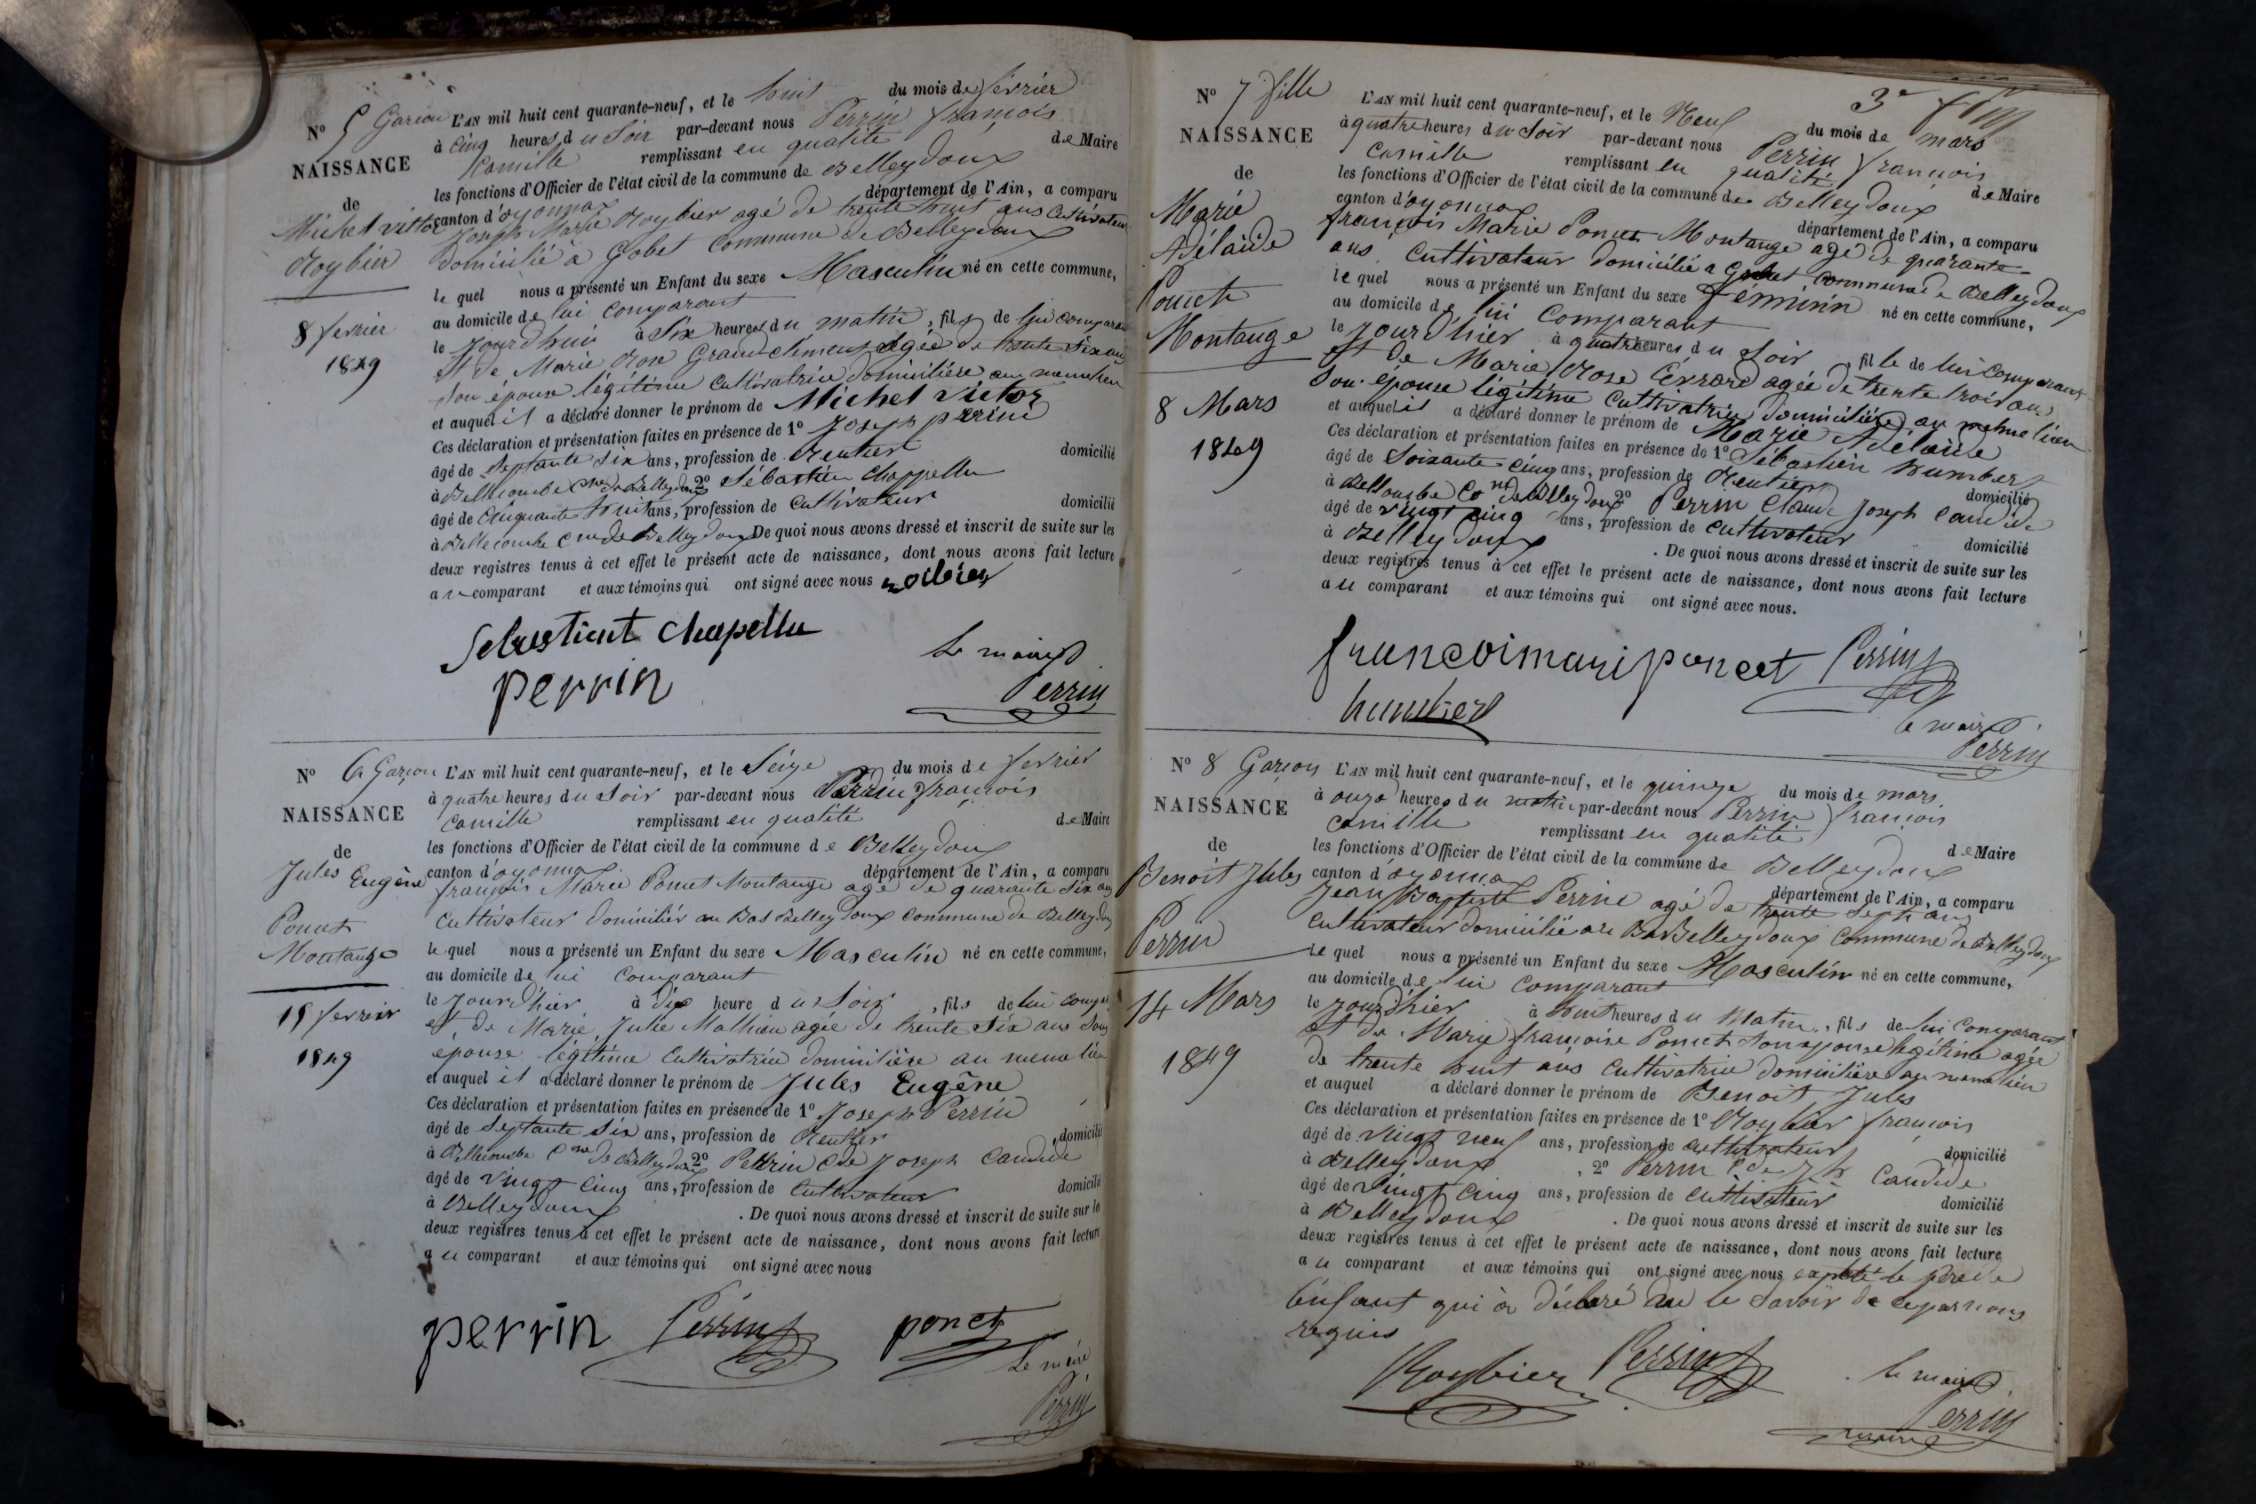 N° 5 Garçon
NAISSANCE
de
Michel victor
Roybier
8 fevrier
1849
L'AN mil huit cent quarante-neuf, et le huit du mois de fevrier
à cinq heures du Soir par-devant nous Perrin françois
Camille remplissant en qualité de Maire
les fonctions d'Officier de l'état civil de la commune de Belleydoux
canton d'oyonnax département de l'Ain, a comparu
Joseph Marie Roybier agé de trente huit ans Cultivateur
domicilié à Gobet Commune de Belleydoux
le quel nous a présenté un Enfant du sexe Masculin né en cette commune,
au domicile de lui comparant
le jourdhui à Six heures du matin, fils de lui comparant
et de Marie Rose Grand clement agée de trente six ans
son épouse légitime cultivatrice domicilière au meme lieu
et auquel il a déclaré donner le prénom de Michel Victor
Ces déclaration et présentation faites en présence de 1° Joseph perrin
âgé de septante six ans, profession de Rentier domicilié
à Bellecombe Cne de Belleydoux 2° Sébastien Chappellu
âgé de Cinquante huit ans, profession de Cultivateur domicilié
à Bellecombe Cne de Belleydoux De quoi nous avons dressé et inscrit de suite sur les
deux registres tenus à cet effet le présent acte de naissance, dont nous avons fait lecture
au comparant et aux témoins qui ont signé avec nous
Sebastient Chapellu
perrin
Le maire
Perrin
N° 6 Garçon
NAISSANCE
de
Jules Eugène
Poncet
Montange
15 fevrier
1849
L'AN mil huit cent quarante-neuf, et le Seize du mois de fevrier
à quatre heures du Soir par-devant nous Perrin françois
Camille remplissant en qualité de Maire
les fonctions d'Officier de l'état civil de la commune de Belleydoux
canton d'oyonnax département de l'Ain, a comparu
françois Marie Poncet Montange agé de quarante six ans
Cultivateur domicilier au Bas Belleydoux Commune de Belleydoux
le quel nous a présenté un Enfant du sexe Masculin né en cette commune,
au domicile de lui comparant
le jourd'hier à dix heure du Soir, fils de lui compt
et de Marie Julie Mathieu agée de trente six ans Son
épouse légitime Cultivatrice domicilière au meme lieu
et auquel il a déclaré donner le prénom de Jules Eugène
Ces déclaration et présentation faites en présence de 1° Joseph Perrin
âgé de Septante Six ans, profession de Rentier domicilié
à Bellecombe Cne de Belleydoux 2° Perrin Cde Joseph Candide
âgé de vingt cinq ans, profession de Cultivateur domicilié
à Belleydoux. De quoi nous avons dressé et inscrit de suite sur le
deux registres tenus à cet effet le présent acte de naissance, dont nous avons fait lecture
au comparant et aux témoins qui ont signé avec nous
perrin Perrin poncet
Le maire
Perrin
3e fin
N° 7 fille
NAISSANCE
de
Marie
Adélaide
Poncet
Montange
8 Mars
1849
L'AN mil huit cent quarante-neuf, et le Neuf du mois de mars
à quatre heures du Soir par-devant nous Perrin françois
Camille remplissant en qualité de Maire
les fonctions d'Officier de l'état civil de la commune de Belleydoux
canton d'oyonnax département de l'Ain, a comparu
françois Marie Poncet Montange agé de quarante
ans Cultivateur domicilié a Gobet Commune de Belleydoux
le quel nous a présenté un Enfant du sexe Féminin né en cette commune,
au domicile de lui Comparant
le jourd'hier à quatre heures du Soir fille de lui Comparant
et de Marie Rose Evrard agée de trente trois ans
Son épouse légitime Cultivatrice domicilière au meme lieu
et auquel il a déclaré donner le prénom de Marie Adélaide
Ces déclaration et présentation faites en présence de 1° Sébastien humbert
âgé de Soixante cinq ans, profession de Rentier domicilié
à Bellcombe Cne de Belleydoux 2° Perrin Claude Joseph Candide
âgé de vingt cinq ans, profession de Cultivateur domicilié
à Belleydoux. De quoi nous avons dressé et inscrit de suite sur les
deux registres tenus à cet effet le présent acte de naissance, dont nous avons fait lecture
au comparant et aux témoins qui ont signé avec nous.
francoimariponcet Perrin
humbert
le maire
Perrin
N° 8 Garçon
NAISSANCE
de
Benoit Jules
Perrin
14 Mars
1849
L'AN mil huit cent quarante-neuf, et le quinze du mois de mars
à onze heures du matin par-devant nous Perrin françois
Camille remplissant en qualité de Maire
les fonctions d'Officier de l'état civil de la commune de Belleydoux
canton d'oyonnax département de l'Ain, a comparu
Jean Baptiste Perrin agé de trente Sept ans
Cultivateur domicilié au Bas Belleydoux Commune de Belleydoux
le quel nous a présenté un Enfant du sexe Masculin né en cette commune,
au domicile de lui Comparant
le jourd'hier à huit heures du Matin, fils de lui Comparant
et de Marie françoise Poncet Son epouse legitime agée
de trente huit ans Cultivatrice domicilière au meme lieu
et auquel a déclaré donner le prénom de Benoit Jules
Ces déclaration et présentation faites en présence de 1° Roybier françois
âgé de vingt neuf ans, profession de Cultivateur domicilié
à Belleydoux, 2° Perrin Cde Jh Candide
âgé de vingt cinq ans, profession de Cultivateur domicilié
à Belleydoux. De quoi nous avons dressé et inscrit de suite sur les
deux registres tenus à cet effet le présent acte de naissance, dont nous avons fait lecture
au comparant et aux témoins qui ont signé avec nous excepté le père de
l'enfant qui a déclaré ne le Savoir de ce par nous
requis
Roybier Perrin
le maire
Perrin